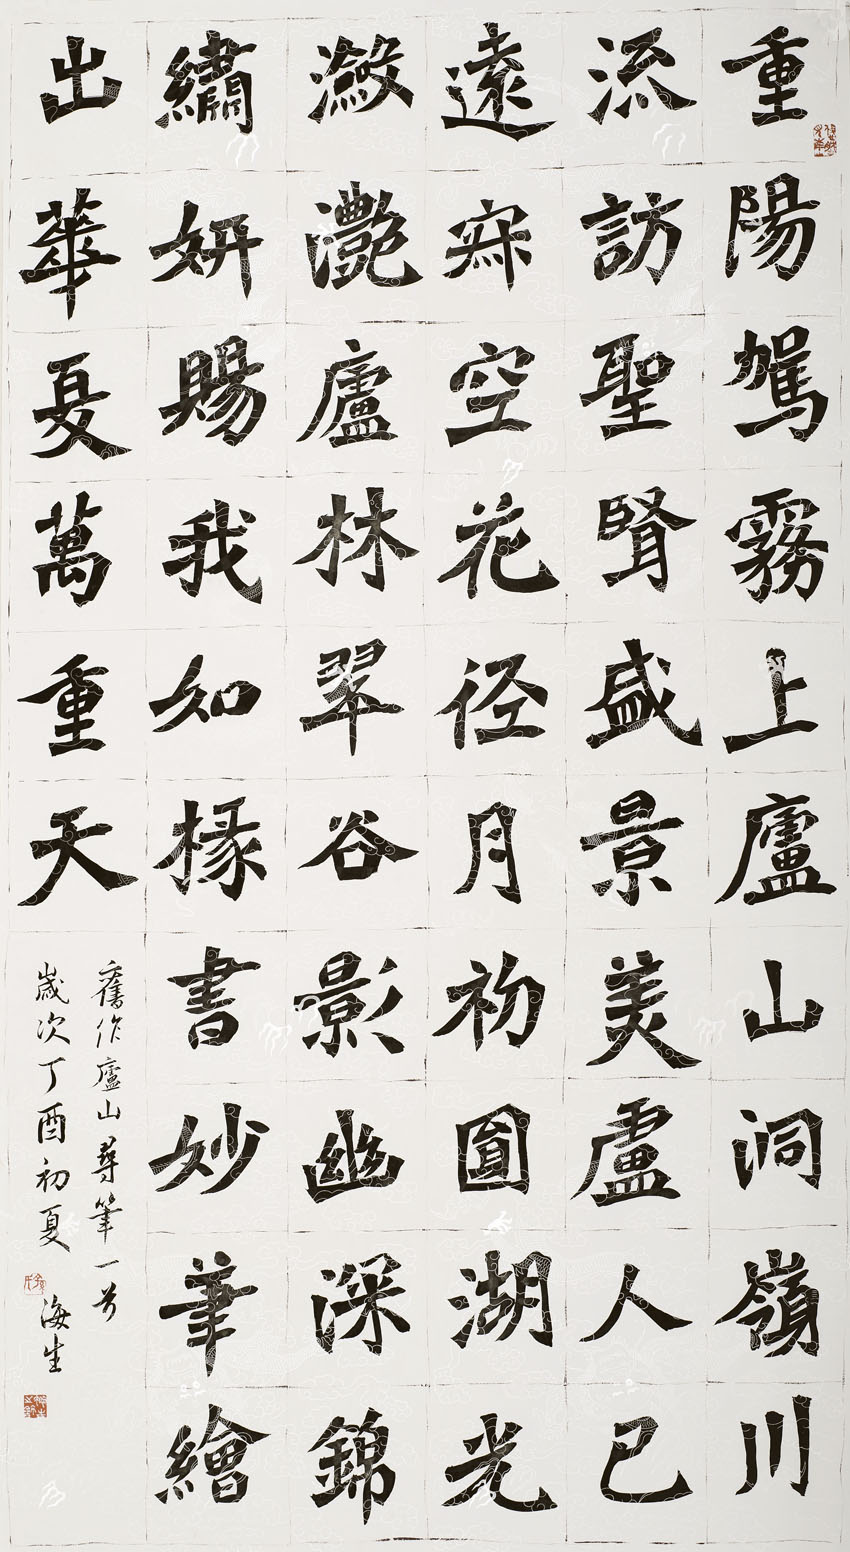 重陽駕霧上廬山洞嶺川
流訪聖賢盛景美盧人已
遠寂空花径月初圓湖光
瀲灧廬林翠谷影幽深錦
繡妍賜我如椽書妙筆繪
出華夏萬重天
舊作廬山尋筆一首
歲次丁酉初夏 海生